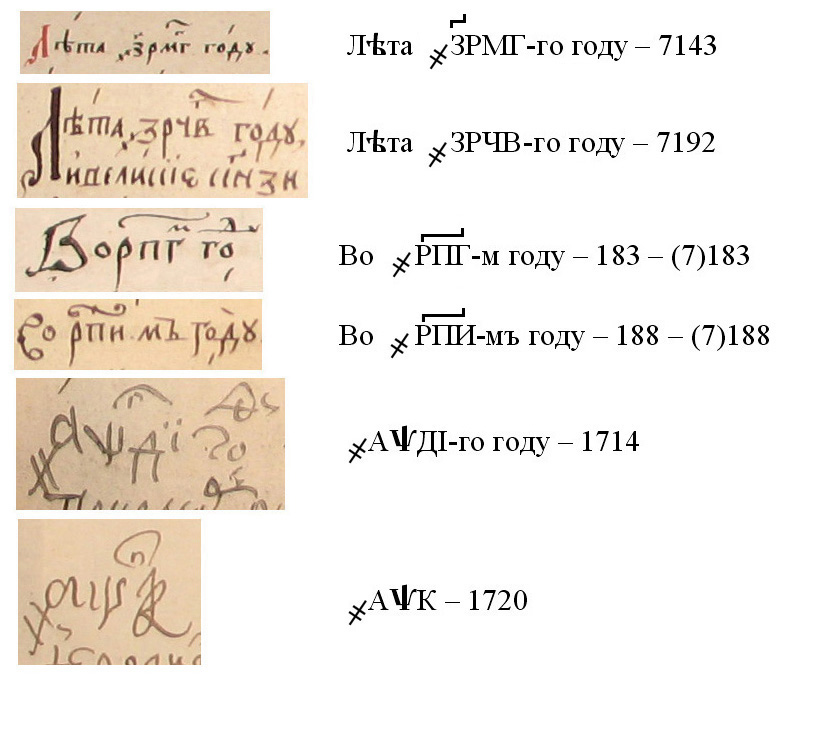 Лѣта ҂зрмг году.
Лѣта ҂ЗРМГ-го году – 7143
Лѣта ҂зрчв году,
Лѣта ҂ЗРЧВ-го году – 7192
Во рпг го
Во ҂РПГ-м году – 183 – (7)183
Во рпи мъ году
Во ҂РПИ-мъ году – 188 – (7)188
҂аѱді го
҂АѰДІ-го году – 1714
҂аѱк
҂АѰК – 1720